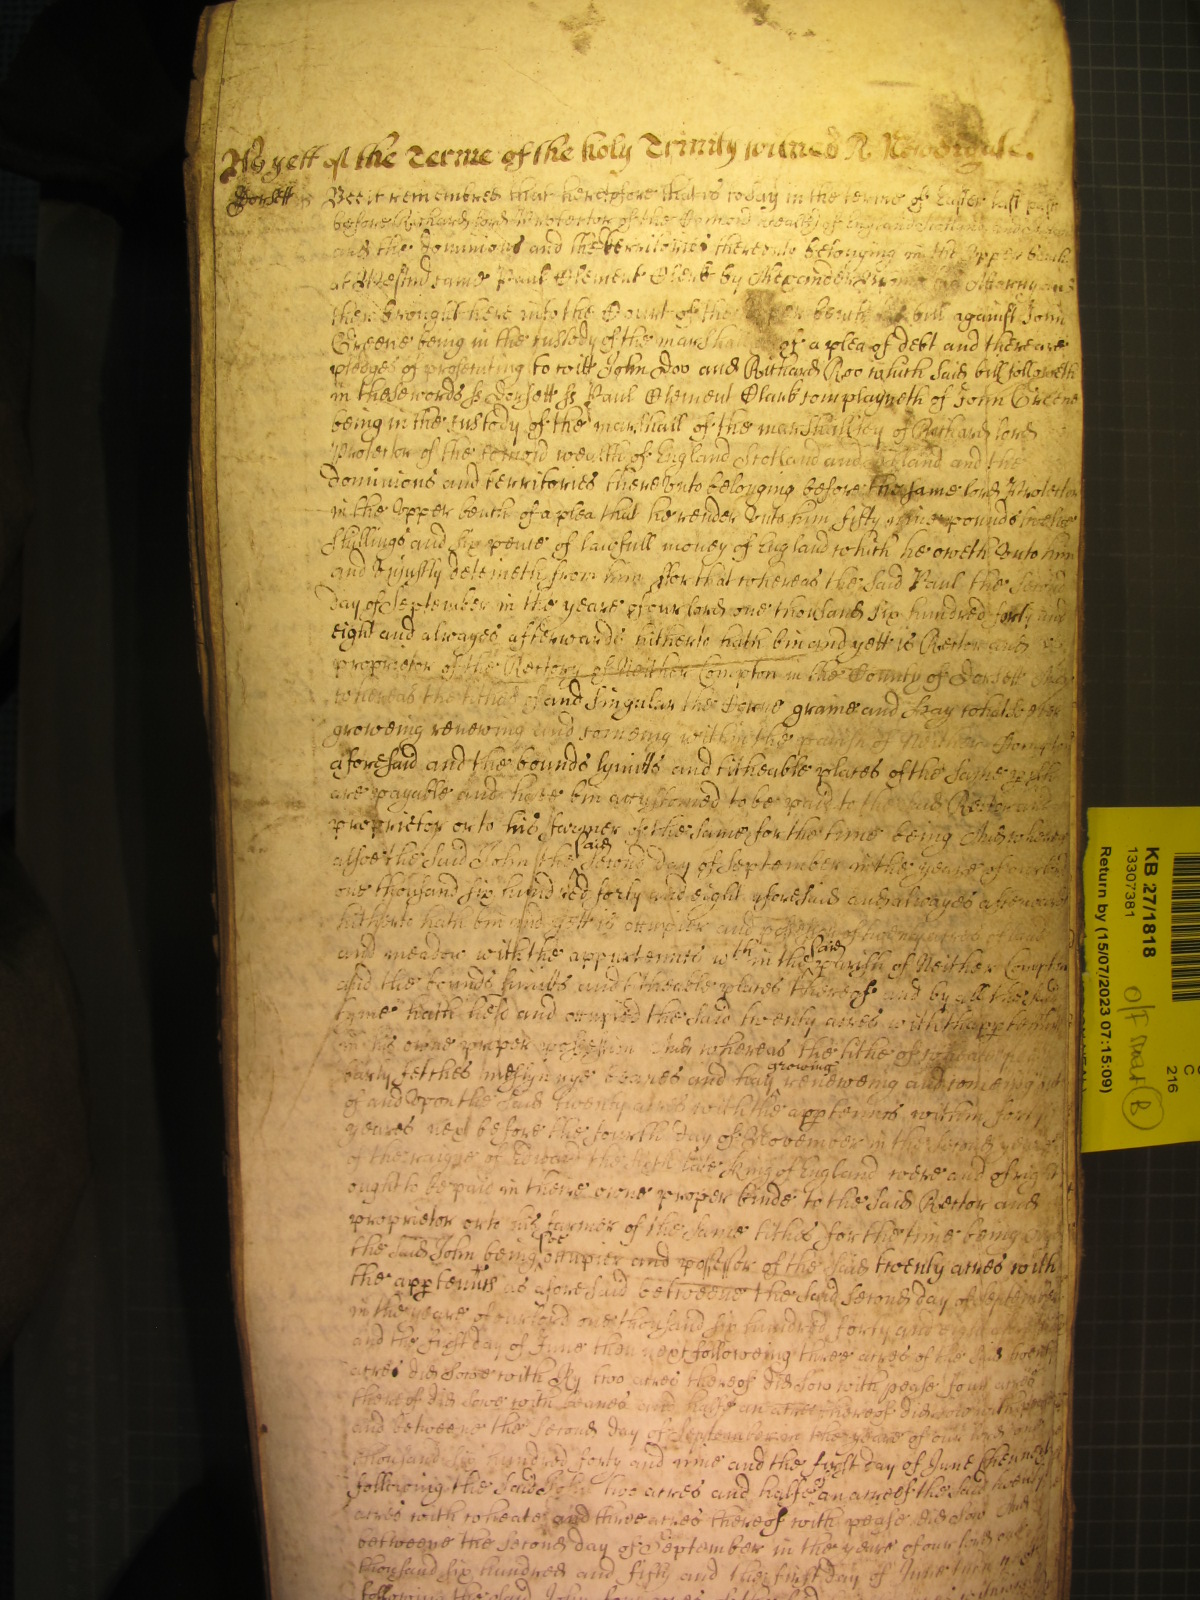 As yett of the Terme of the holy Trinity witnes R. Newdigate.
Dorsett ss Bee it remembred that heretofore that is to say in the terme of Easter last past
before Richard lord Protector of the Comon wealth of England Scotland and Ireland
and the dominions and the territories thereunto belonging in the Upper bench
at Westmr came Paul Clement Clerk by Alexander his Attorny and
then brought here into the Court of the upper bench his bill against John
Greene being in the custody of the marshall of a plea of debt and there are
pledges of prosecuting to witt John Doo and Richard Roo which said bill followeth
in these words ss Dorsett ss Paul Clement Clark complayneth of John Greene
being in the custody of the marshall of the marshallsey of Richard lord
Protector of the comon wealth of England Scotland and Ireland and the
dominions and territories thereunto belonging before the same lord Protector
in the Upper bench of a plea that he render unto him fifty nine pounds twelve
shillings and six pence of lawfull money of England which he oweth unto him
and unjustly deteineth from him ffor that whereas the said Paul the second
day of September in the yeare of our lord one thousand six hundred forty and
eight and alwayes afterwards hitherto hath bin and yett is Rector and
proprietor of the Rectory of Neither Compton in the County of Dorsett And
whereas the tithes of and singular the Corne graine and hay whatsoever
groweing renewing and comeing within the parish of Neither Compton
aforesaid and the bounds lymitts and titheable places of the same pish
are payable and have bin accustomed to be paid to the said Rector and
proprietor or to his farmer of the same for the time being And whereas
alsoe the said John the said second day of September in the yeare of our lord
one thousand six hundred forty and eight aforesaid and alwayes afterwards
hitherto hath bin and yett is occupier and possessor of twenty acres of land
and meadow with the appurtennts wth in the said parish of Neither Compton
and the bounds limitts and titheable places thereof and by all the said
tyme hath held and occupied the said twenty acres with thapptennts
in his owne proper possession And whereas the tithe of wheate pease
barly fetches rye beanes and hay growing renewing and comeing
of and upon the said twenty acres with the apptennts within forty
yeares next before the fourth day of November in the second yeare
of the raigne of Edward the sixth late King of England were and of right
ought to be paid in there owne proper kinde to the said Rector and
proprietor or to his farmer of the same tithes for the time being And
the said John being soe occupier and possessor of the said twenty acres with
the apptennts as aforesaid betweene the said second day of September
in the yeare of our lord one thousand six hundred forty and eight
and the first day of June then next following three acres of the said twenty
acres did sowe with Ry two acres thereof did sow with pease four acres
thereof did sowe with beanes and halfe an acre thereof did sow with
and betweene the second day of September in the yeare of our lord one
thousand six hundred forty and nine and the first day of June then next
following the said John two acres and halfe an acre of the said twenty
acres with wheate and three acres thereof with pease did sow And
betweene the second day of September in the yeare of our lord one
thousand six hundred and fifty and the first day of June then next
following the said John four acres of the said
KB 27/1818
13307381
Return by (15/07/2023 07:15:09)
C
216